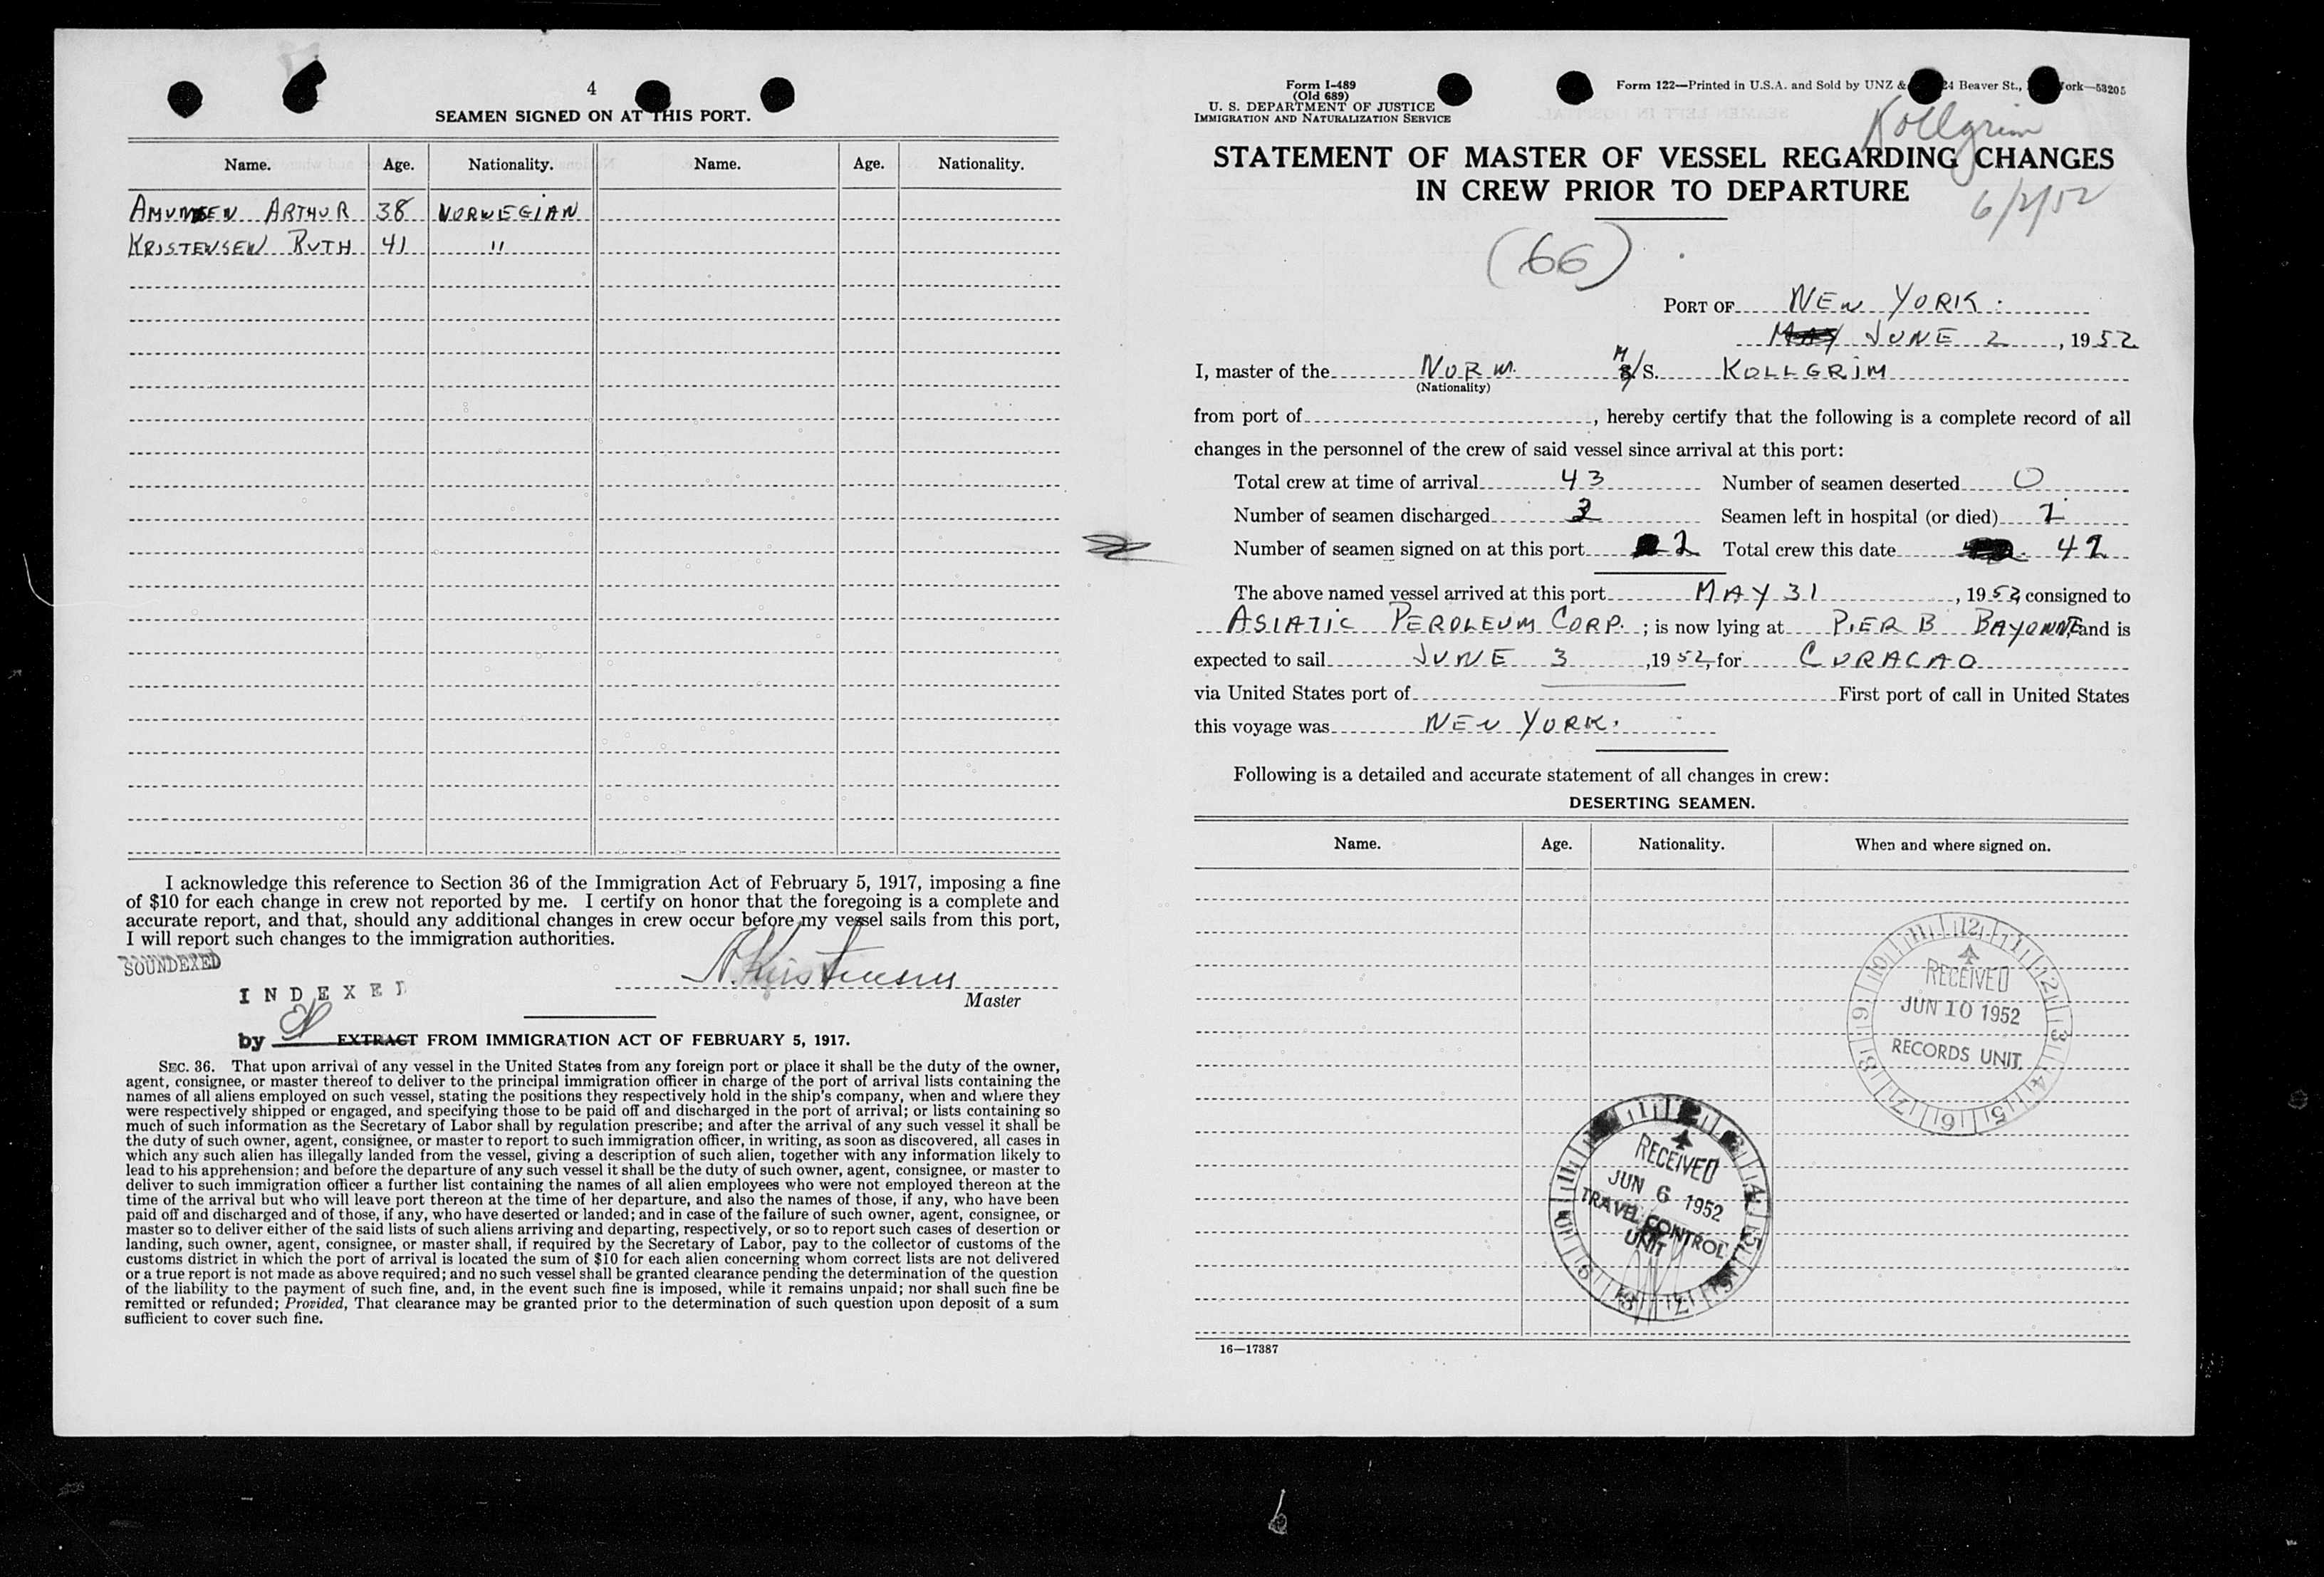 4
SEAMEN SIGNED ON AT THIS PORT.
Name. Age. Nationality. Name. Age. Nationality.
ARTHUR 38 NORWEGIAN
KRISTENSEN RUTH 41 "
I acknowledge this reference to Section 36 of the Immigration Act of February 5, 1917, imposing a fine
of $10 for each change in crew not reported by me. I certify on honor that the foregoing is a complete and
accurate report, and that, should any additional changes in crew occur before my vessel sails from this port,
I will report such changes to the immigration authorities.
SOUNDEXED
Kristensen
INDEXED
Master
by
EXTRACT FROM IMMIGRATION ACT OF FEBRUARY 5, 1917.
SEC. 36. That upon arrival of any vessel in the United States from any foreign port or place it shall be the duty of the owner,
agent, consignee, or master thereof to deliver to the principal immigration officer in charge of the port of arrival lists containing the
names of all aliens employed on such vessel, stating the positions they respectively hold in the ship's company, when and where they
were respectively shipped or engaged, and specifying those to be paid off and discharged in the port of arrival; or lists containing so
much of such information as the Secretary of Labor shall by regulation prescribe; and after the arrival of any such vessel it shall be
the duty of such owner, agent, consignee, or master to report to such immigration officer, in writing, as soon as discovered, all cases in
which any such alien has illegally landed from the vessel, giving a description of such alien, together with any information likely to
lead to his apprehension; and before the departure of any such vessel it shall be the duty of such owner, agent, consignee, or master to
deliver to such immigration officer a further list containing the names of all alien employees who were not employed thereon at the
time of the arrival but who will leave port thereon at the time of her departure, and also the names of those, if any, who have been
paid off and discharged and of those, if any, who have deserted or landed; and in case of the failure of such owner, agent, consignee, or
master so to deliver either of the said lists of such aliens arriving and departing, respectively, or so to report such cases of desertion or
landing, such owner, agent, consignee, or master shall, if required by the Secretary of Labor, pay to the collector of customs of the
customs district in which the port of arrival is located the sum of $10 for each alien concerning whom correct lists are not delivered
or a true report is not made as above required; and no such vessel shall be granted clearance pending the determination of the question
of the liability to the payment of such fine, and, in the event such fine is imposed, while it remains unpaid; nor shall such fine be
remitted or refunded; Provided, That clearance may be granted prior to the determination of such question upon deposit of a sum
sufficient to cover such fine.
Form I-489
(Old 689)
U. S. DEPARTMENT OF JUSTICE
IMMIGRATION AND NATURALIZATION SERVICE
Form 122—Printed in U.S.A. and Sold by UNZ & 24 Beaver St., York—53205
Kollgrim
STATEMENT OF MASTER OF VESSEL REGARDING CHANGES
IN CREW PRIOR TO DEPARTURE
6/2/52
(66)
PORT OF NEW YORK.
MAY JUNE 2, 1952
I, master of the NORW. M/S. KOLLGRIM
(Nationality)
from port of , hereby certify that the following is a complete record of all
changes in the personnel of the crew of said vessel since arrival at this port:
Total crew at time of arrival 43 Number of seamen deserted 0
Number of seamen discharged Seamen left in hospital (or died) 1
Number of seamen signed on at this port 2 Total crew this date
The above named vessel arrived at this port MAY 31, 1952 consigned to
ASIATIC PEROLEUM CORP. ; is now lying at PIER B BAYONNE, and is
expected to sail JUNE 3, 1952, for CURACAO
via United States port of First port of call in United States
this voyage was NEW YORK.
Following is a detailed and accurate statement of all changes in crew:
DESERTING SEAMEN.
Name. Age. Nationality. When and where signed on.
RECEIVED
JUN 10 1952
RECORDS UNIT.
RECEIVED
JUN 6 1952
TRAVEL CONTROL
UNIT
16—17387
6